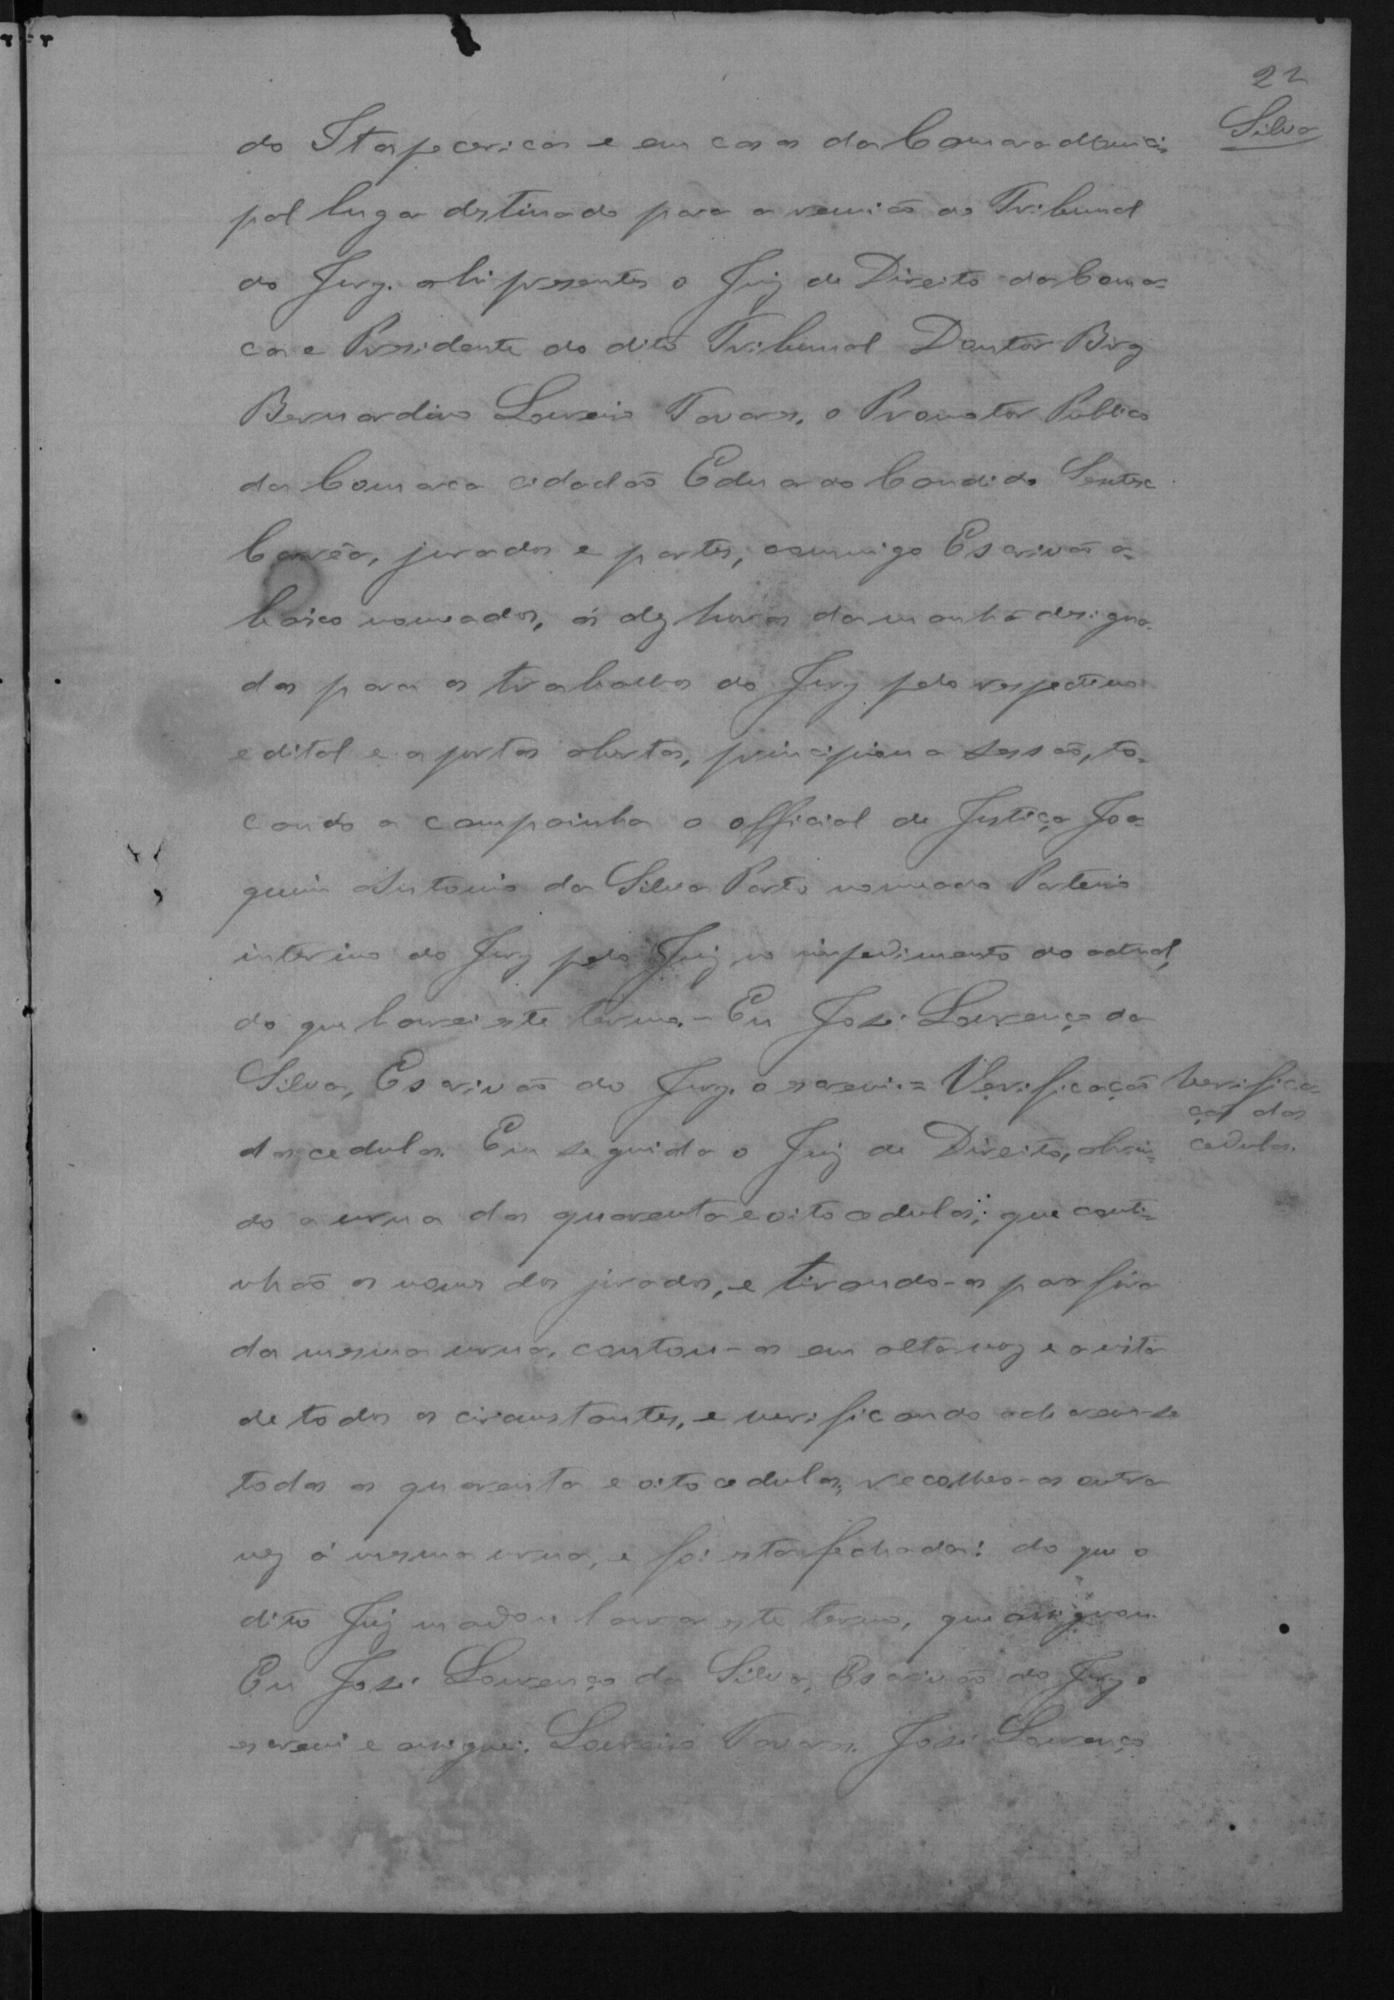 22
Silva
do Itapecerica e em casa da Camara Munici=
pal lugar destinado para a reunião do Tribunal
do Jury. ahi presentes o Juiz de Direito da Comar=
ca e Presidente do dito Tribunal Doutor
Bernardino Loureiro Tavares, o Promotor Publico
da Comarca cidadão Eduardo Candido
Corrêa, jurados e partes, commigo Escrivão a=
baixo nomeados, ás dez horas da manhã designa=
das para os trabalhos do Jury pelo respectivo
edital e a portas abertas, principiou a sessão, to=
cando a campainha o official de Justiça Joa=
quim Antonio da Silva Porto nomeado Porteiro
interino do Jury pelo Juiz no impedimento do actual,
do que lavrei este termo. - Eu José Lourenço da
Silva, Escrivão do Jury. o escrevi. = Verificação
das cedulas. Em seguida o Juiz de Direito, abrin=
do a urna das quarenta e oito cedulas; que conti=
nhão os nomes dos jurados, e tirando-as para fóra
da mesma urna, contou-as em alta voz e a vista
de todos os circunstantes, e verificando acharem-se
todas as quarenta e oito cedulas, recolheo-as outra
vez á mesma urna, e foi esta fechada: do que o
dito Juiz madou lavrar este termo, que assignou.
Eu José Lourenço da Silva, Escrivão do Jury o
escrevi e assignei. Loureiro Tavares. José Lourenço
Verifica=
ção das
cedulas.